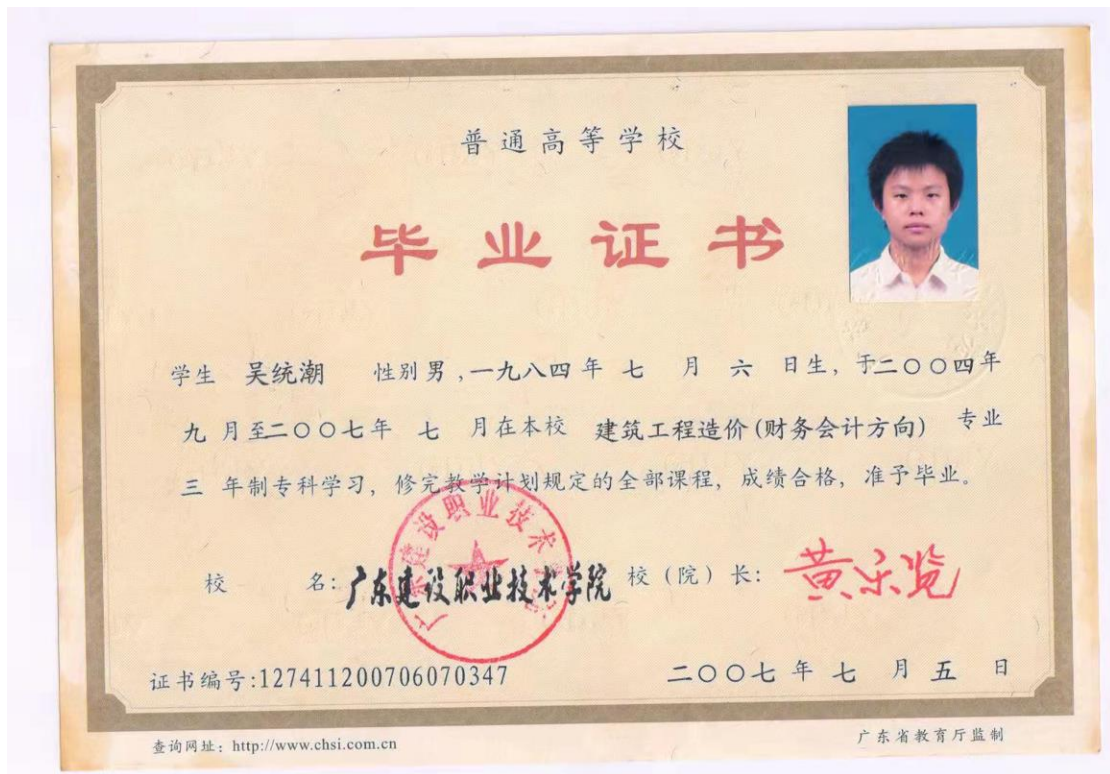 普通高等学校
毕业证书
学生 吴统潮 性别 男 ,一九八四 年 七 月 六 日生, 于二〇〇四年
九 月至二〇〇七年 七 月在本校 建筑工程造价(财务会计方向) 专业
三 年制专科学习, 修完教学计划规定的全部课程, 成绩合格, 准予毕业。
广东建设职业技术学院
校 名: 广东建设职业技术学院 校(院)长:
证书编号:127411200706070347 二〇〇七 年 七 月 五 日
查询网址: http://www.chsi.com.cn 广东省教育厅监制